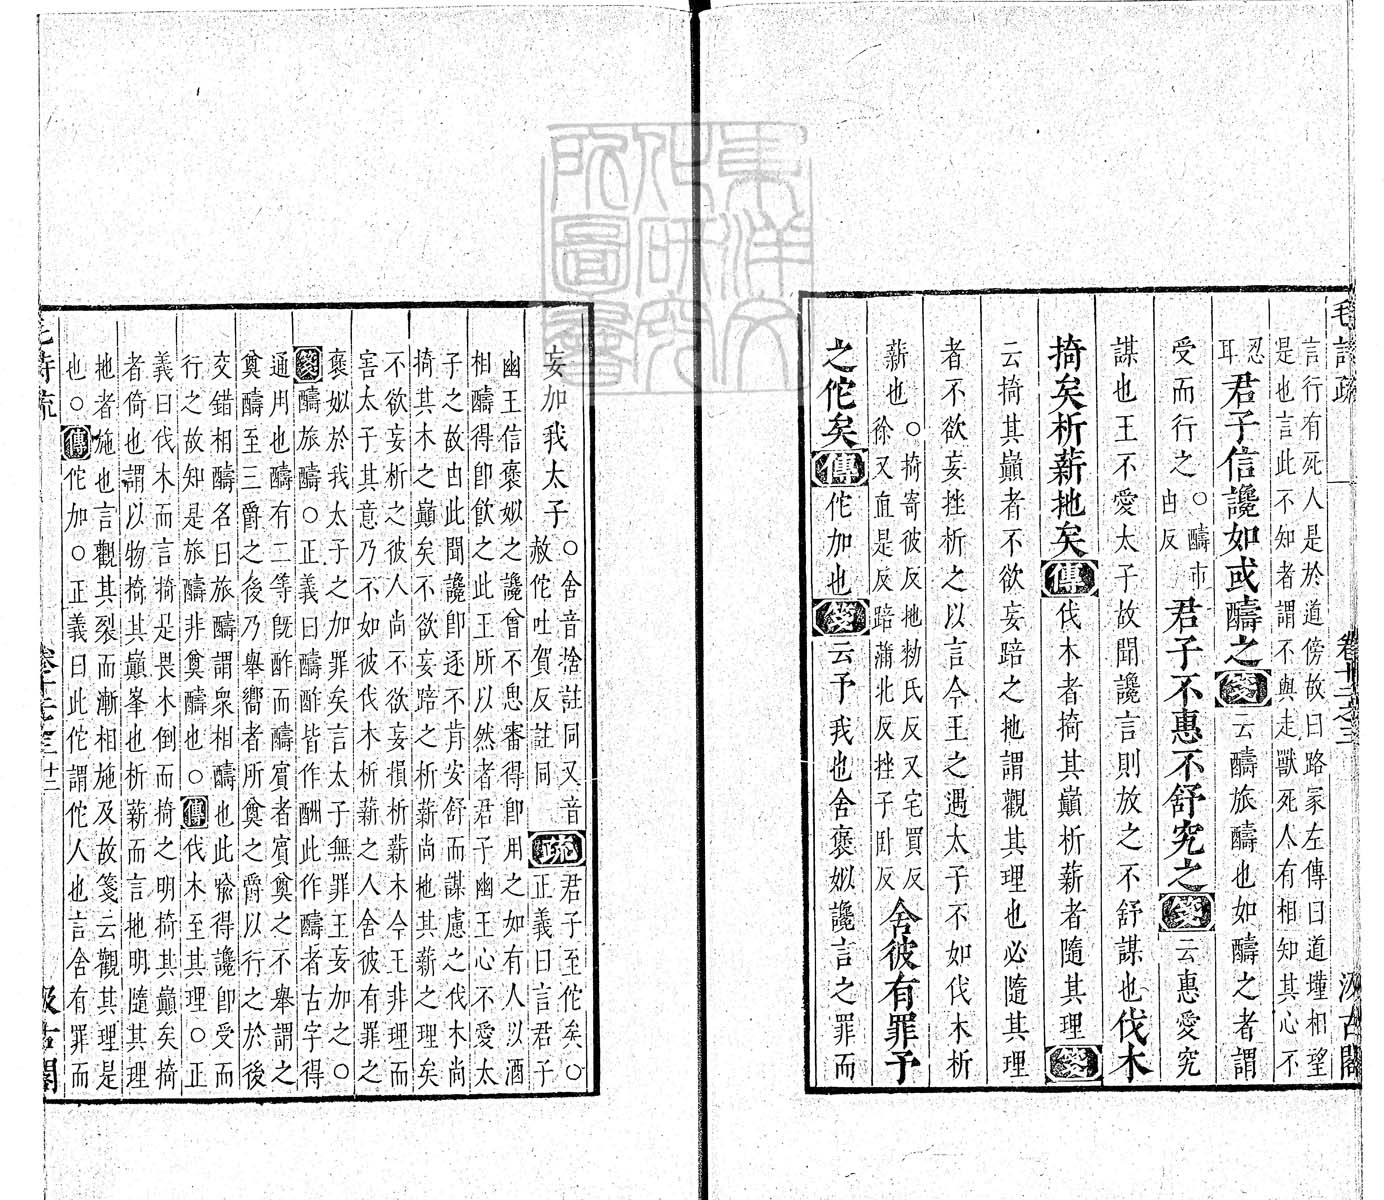 毛詩疏 卷十二之三 汲古閣
言行有死人是於道傍故曰路冢左傳曰道墐相望
是也言此不知者謂不與走獸死人有相知其心不
忍耳君子信讒如或醻之箋云醻旅醻也如醻之者謂
受而行之○醻市由反君子不惠不舒究之箋云惠愛究
謀也王不愛太子故聞讒言則放之不舒謀也伐木
掎矣析薪扡矣傳伐木者掎其巔析薪者隨其理箋
云掎其巔者不欲妄踣之扡謂觀其理也必隨其理
者不欲妄挫析之以言今王之遇太子不如伐木析
薪也○掎寄彼反扡勑氏反又宅買反徐又直是反踣蒲北反挫子卧反舍彼有罪予
之佗矣傳佗加也箋云予我也舍褒姒讒言之罪而
妄加我太子○舍音捨註同又音赦佗吐賀反註同疏君子至佗矣○正義曰言君子
幽王信褒姒之讒曾不思審得卽用之如有人以酒
相醻得卽飲之此王所以然者君子幽王心不愛太
子之故由此聞讒卽逐不肯安舒而謀慮之伐木尚
掎其木之巔矣不欲妄踣之析薪尚扡其薪之理矣
不欲妄析之彼人尚不欲妄損析薪木今王非理而
害太子其意乃不如彼伐木析薪之人舍彼有罪之
褒姒於我太子之加罪矣言太子無罪王妄加之○
箋醻旅醻○正義曰醻酢皆作酬此作醻者古字得
通用也醻有二等旣酢而醻賓者賓奠之不舉謂之
奠醻至三爵之後乃舉嚮者所奠之爵以行之於後
交錯相醻名曰旅醻謂衆相醻也此喻得讒卽受而
行之故知是旅醻非奠醻也○傳伐木至其理○正
義曰伐木而言掎是畏木倒而掎之明掎其巔矣掎
者倚也謂以物掎其巔峯也析薪而言扡明隨其理
扡者施也言觀其裂而漸相施及故箋云觀其理是
也○傳佗加○正義曰此佗謂佗人也言舍有罪而
毛詩疏 卷十二之三 廿二 汲古閣